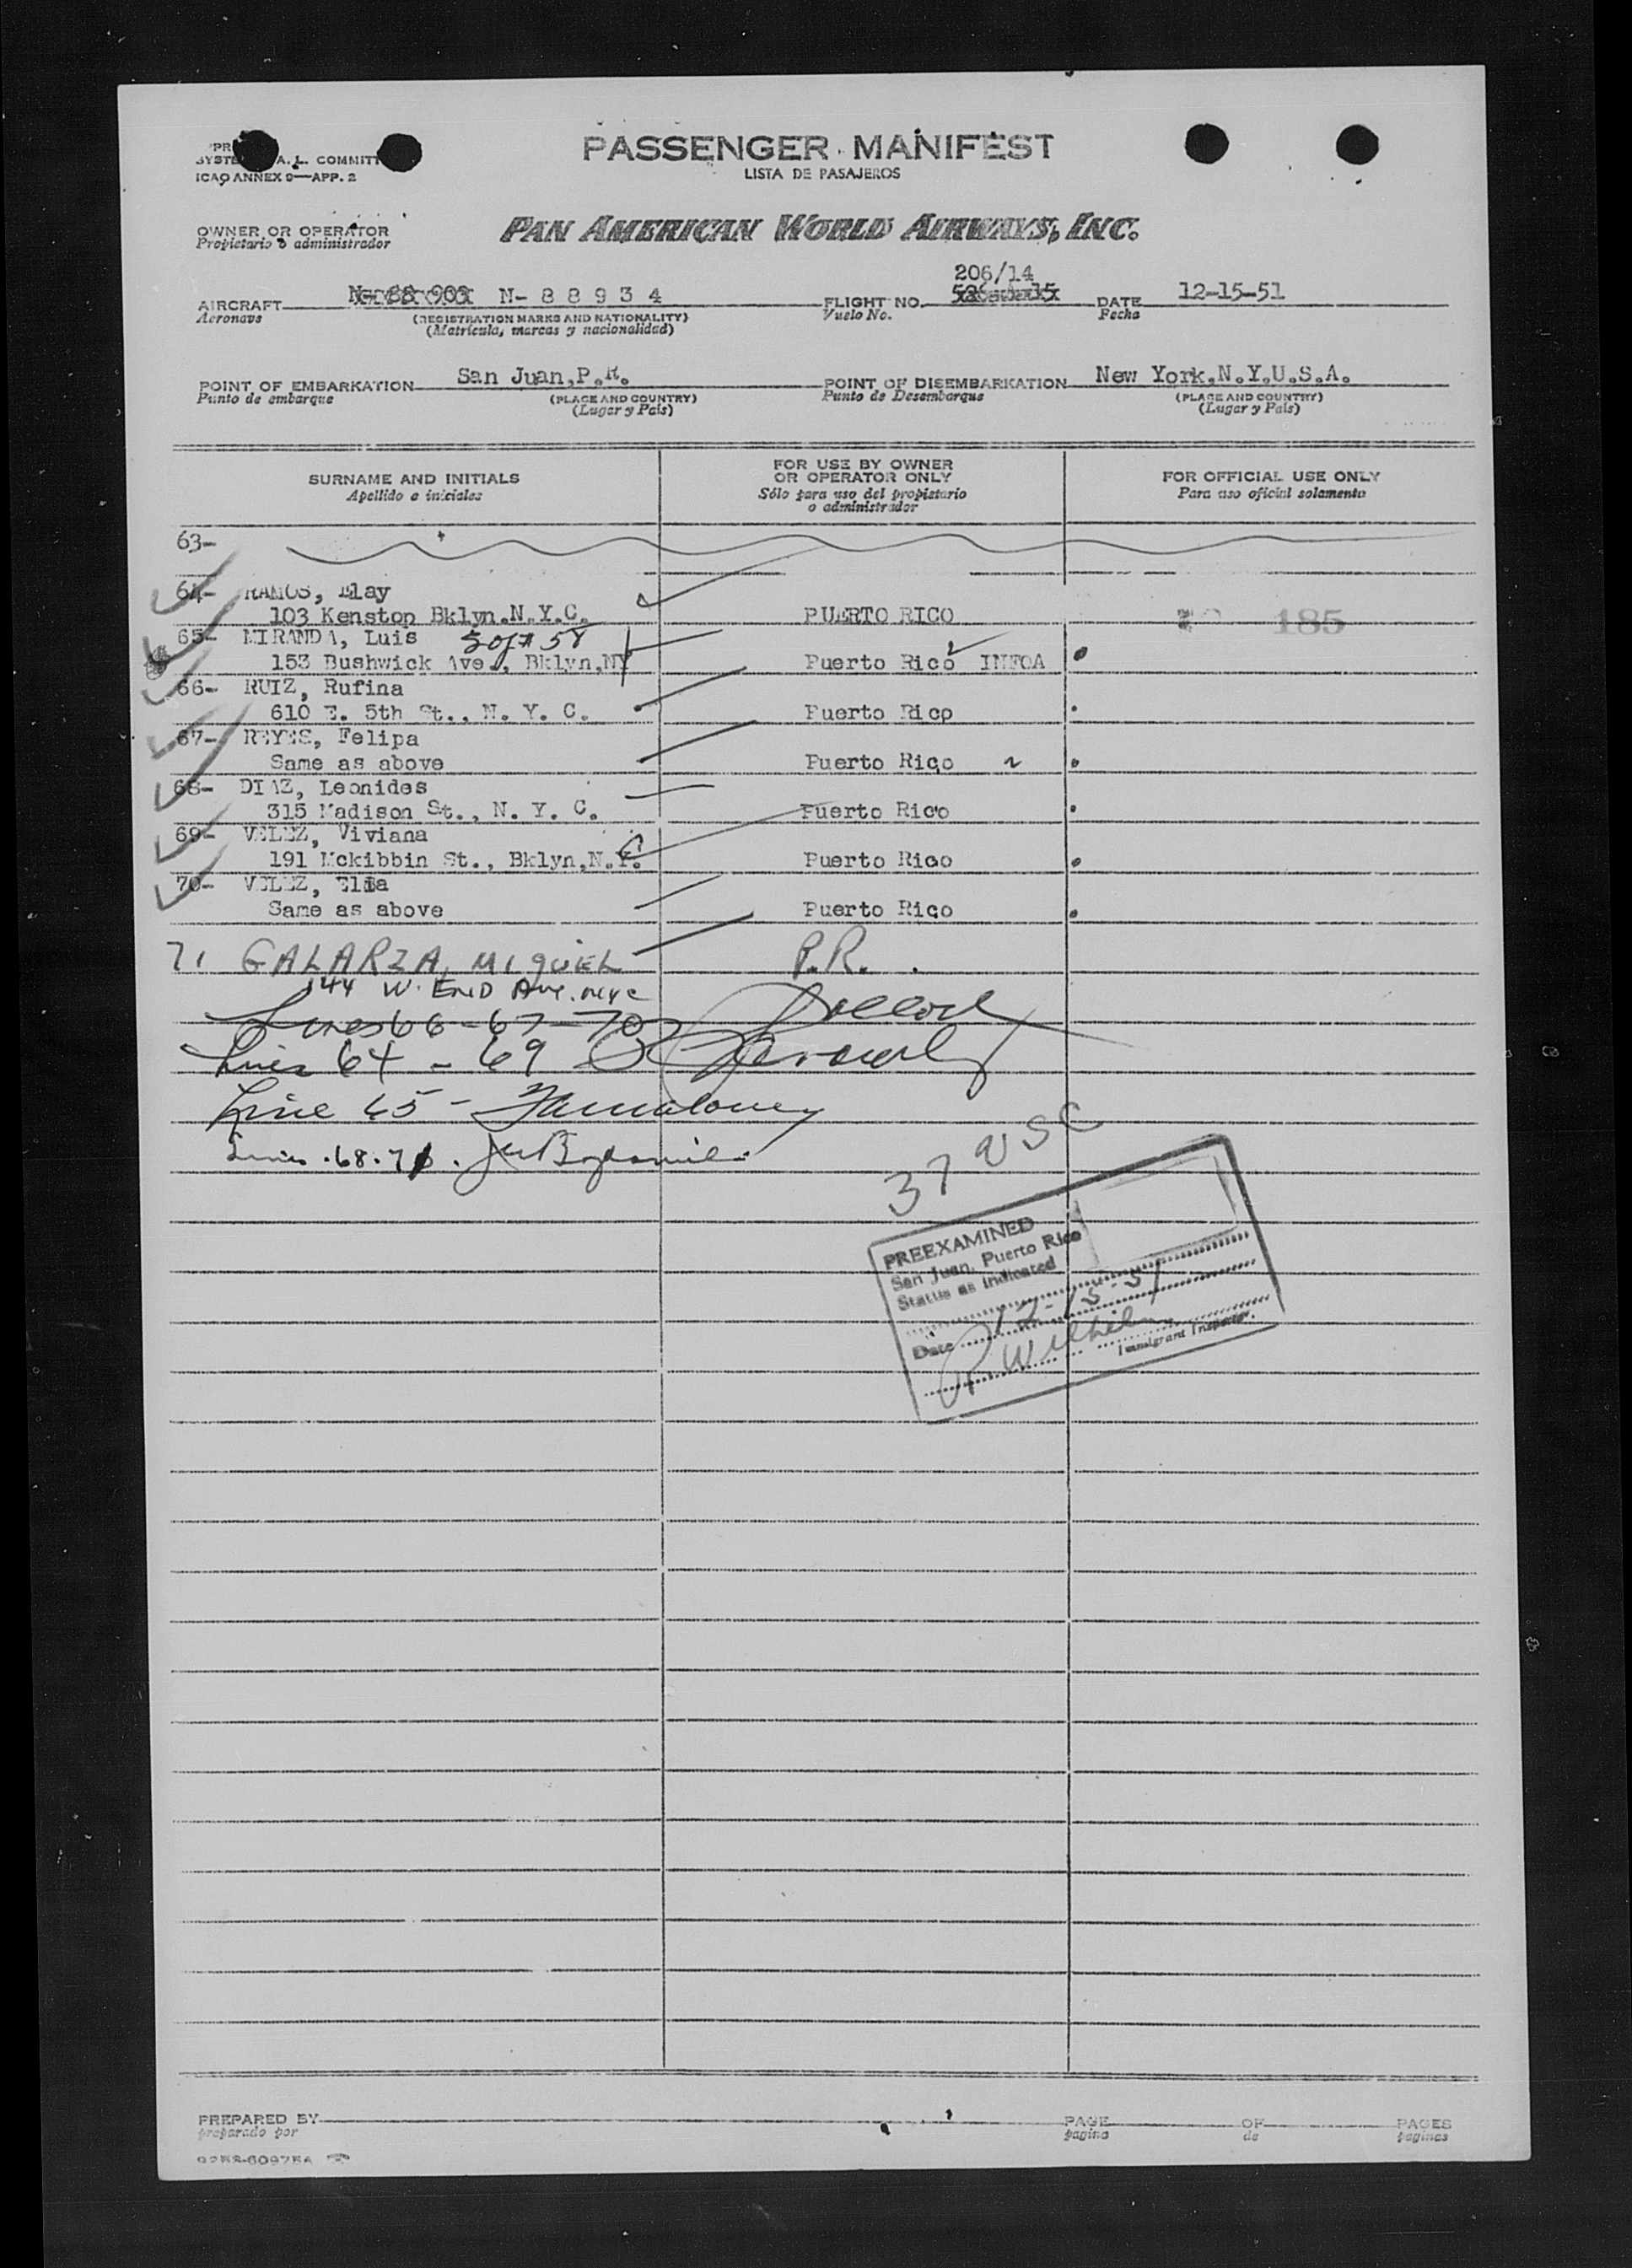 PASSENGER MANIFEST
LISTA DE PASAJEROS
A. L. COMMITT
ICAO ANNEX 9—APP. 2
OWNER OR OPERATOR
Propietario o administrador
PAN AMERICAN WORLD AIRWAYS, INC.
206/14
AIRCRAFT N- 8 8 9 3 4 FLIGHT NO. DATE 12-15-51
Aeronave (REGISTRATION MARKS AND NATIONALITY) Vuelo No. Fecha
(Matrícula, marcas y nacionalidad)
POINT OF EMBARKATION San Juan,P.R. POINT OF DISEMBARKATION New York,N.Y.U.S.A.
Punto de embarque (PLACE AND COUNTRY) Punto de Desembarque (PLACE AND COUNTRY)
(Lugar y País) (Lugar y País)
SURNAME AND INITIALS FOR USE BY OWNER OR OPERATOR ONLY FOR OFFICIAL USE ONLY
Apellido e iniciales Sólo para uso del propietario o administrador Para uso oficial solamente
63-
64- RAMOS, Elay
103 Kenstop Bklyn.N.Y.C. PUERTO RICO 185
65- MIRANDA, Luis
153 Bushwick Ave., Bklyn,NY Puerto Rico INFOA
66- RUIZ, Rufina
610 E. 5th St., N. Y. C. Puerto Rico
67- REYES, Felipa
Same as above Puerto Rico
68- DIAZ, Leonides
315 Madison St., N. Y. C. Puerto Rico
69- VELEZ, Viviana
191 Mckibbin St., Bklyn,N.Y. Puerto Rico
70- VELEZ, Elba
Same as above Puerto Rico
71 GALARZA, MIGUEL P.R.
144 W. END Ave. nyc
Lines 66-67-70
Lines 64 - 69
Line 65 -
Lines 68-71
37 USC
PREEXAMINED
San Juan, Puerto Rico
Status as Indicated
Date 12-15-51
Immigrant Inspector.
PREPARED BY PAGE OF PAGES
preparado por pagina de paginas